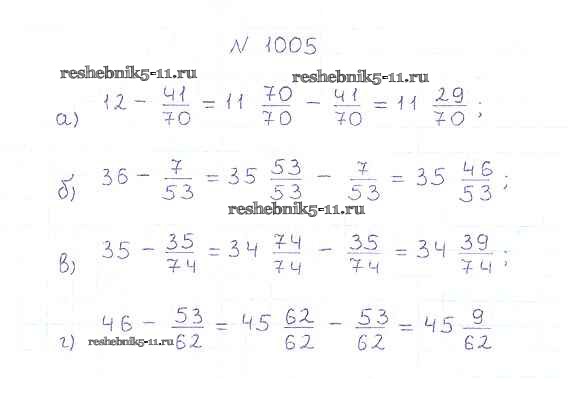 N 1005
reshebnik5-11.ru reshebnik5-11.ru
а) 12 - 41/70 = 11 70/70 - 41/70 = 11 29/70;
б) 36 - 7/53 = 35 53/53 - 7/53 = 35 46/53;
reshebnik5-11.ru
в) 35 - 35/74 = 34 74/74 - 35/74 = 34 39/74;
г) 46 - 53/62 = 45 62/62 - 53/62 = 45 9/62
reshebnik5-11.ru